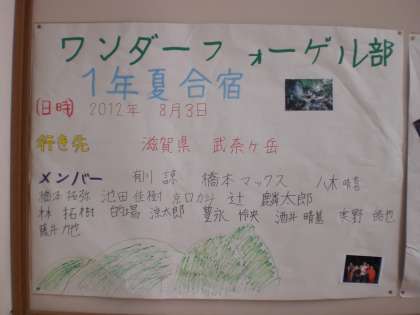 ワンダーフォーゲル部
1年夏合宿
(日時) 2012年 8月3日
行き先 滋賀県 武奈ヶ岳
メンバー 諒 橋本マックス 八木
拓弥 池田 佳樹 辻 麟太郎
林 拓樹 的場 涼太郎 豊永 酒井 晴基
藤井